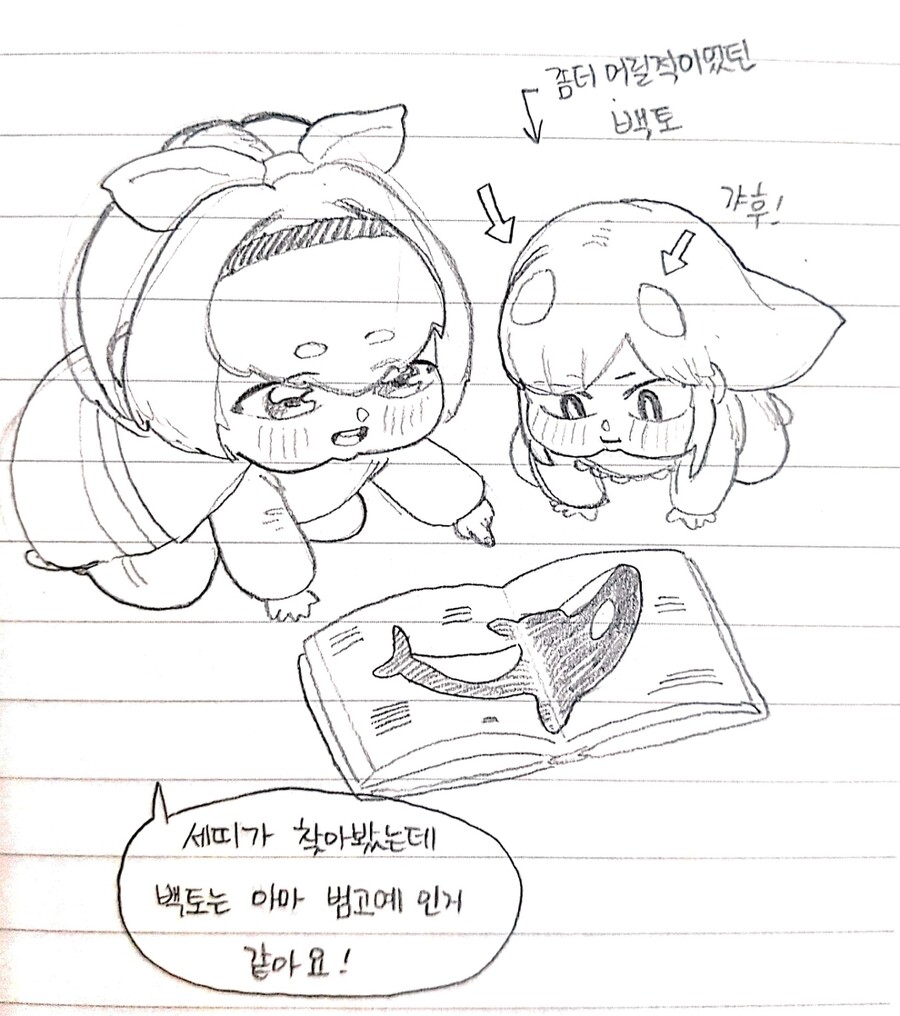 좀더 어릴적이었던
백토
갸훅!
세띠가 찾아봤는데
백토는 아마 범고예 인거
같아요!